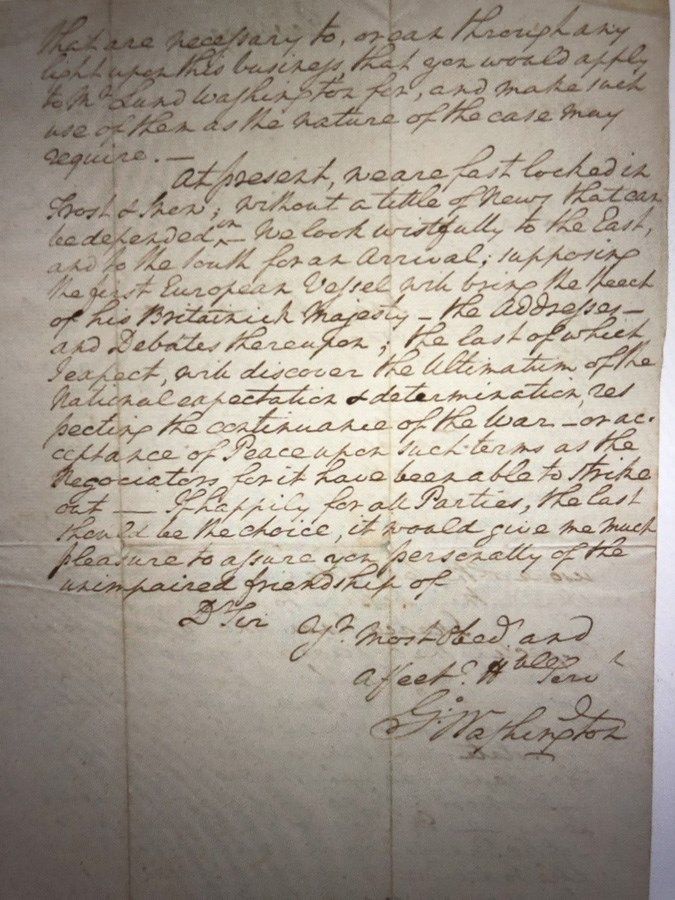 that are necessary to, or can through any
light upon this business, that you would apply
to Mr. Lund Washington for, and make such
use of them as the nature of the case may
require. —
At present, we are fast locked in
Frost & Snow; without a tittle of News that can
be depended on — We look wistfully to the East,
and to the South for an Arrival; supposing
the first European Vessel will bring the Speech
of his Britainick Majesty — the Addresses —
and Debates thereupon; the last of which
I expect, will discover the Ultimatum of the
National expectation & determination, res
pecting the continuance of the War — or ac-
ceptance of Peace upon such terms as the
Negociators for it have been able to strike
out — If happily for all Parties, the last
should be the choice, it would give me much
pleasure to assure you personally of the
unimpaired friendship of
Dr. Sir
Yr. most obedt. and
Affecte. Hble Servt
Go: Washington